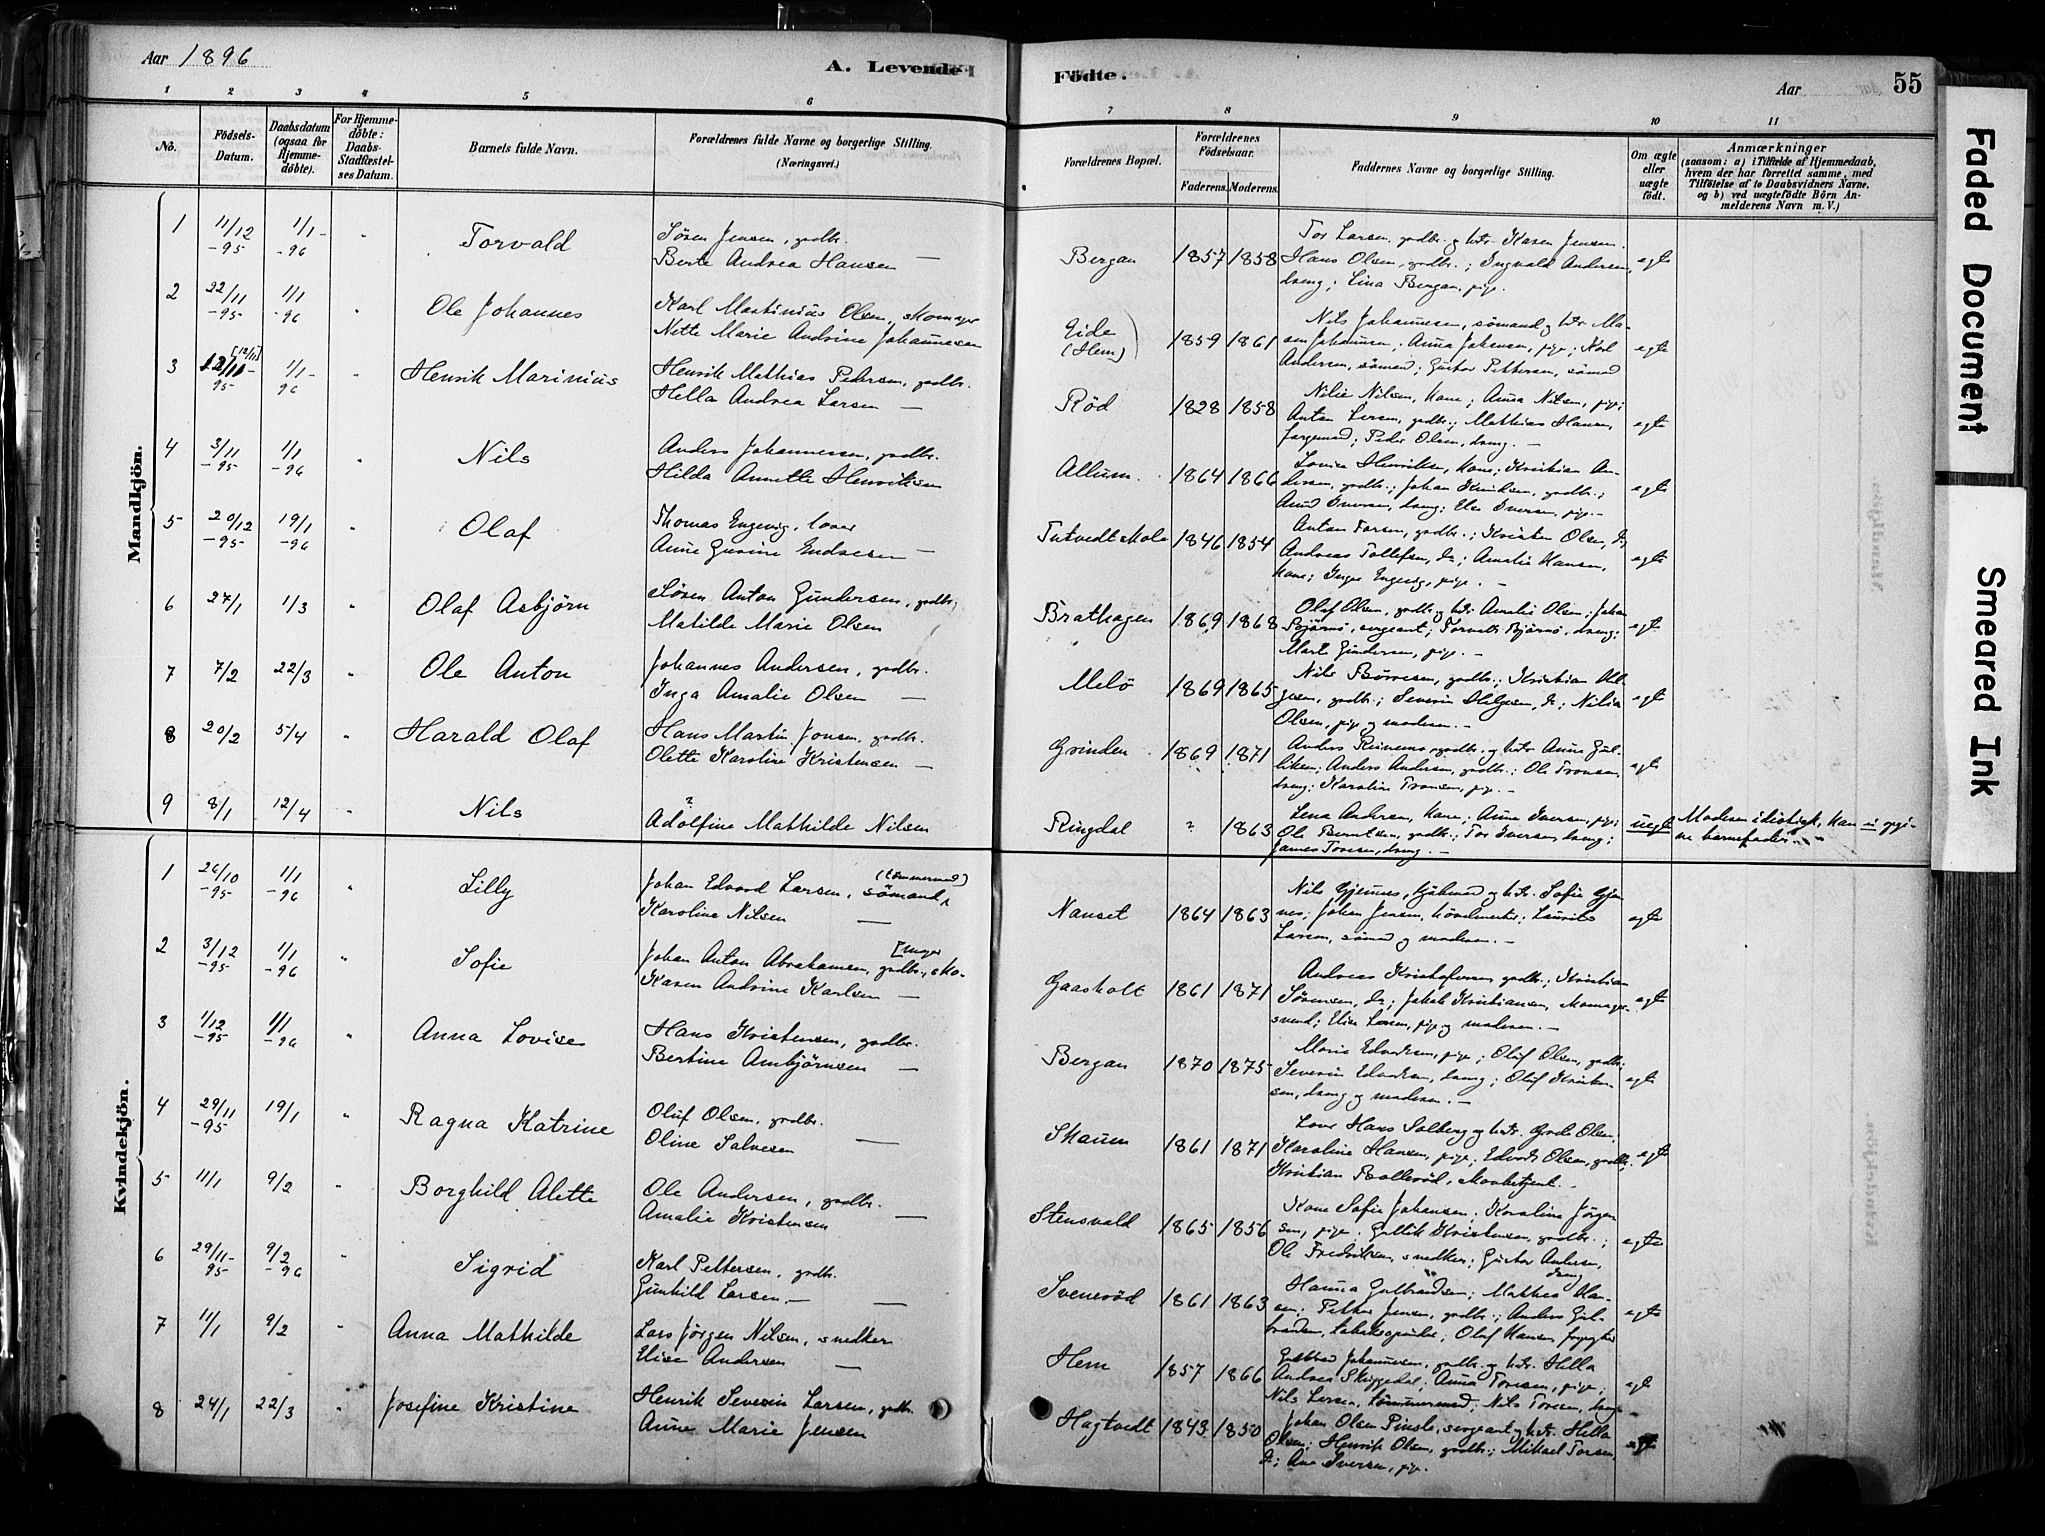 Aar 1896
A. Levende
Födte.
Aar
55
1 2 3 4 5 6 7 8 9 10 11
No.
Födsels-Datum.
Daabsdatum (ogsaa for Hjemme-döbte).
For Hjemme-döbte: Daabs-Stadfæstel-ses Datum.
Barnets fulde Navn.
Forældrenes fulde Navne og borgerlige Stilling.
(Næringsvei.)
Forældrenes Bopæl.
Forældrenes Födselsaar.
Faderens. Moderens.
Faddernes Navne og borgerlige Stilling.
Om ægte eller uægte født.
Anmærkninger
(saasom: a) i Tilfælde af Hjemmedaab,
hvem der har forrettet samme, med
Tilföielse af to Daabsvidners Navne.
og b) ved uægtefödte Börn An-
melderens Navn m. V.)
Mandkjön.
1 11/12 -95 1/1 -96 " Torvald
Sören Jensen, gaardbr.
Berte Andrea Hansen —
Bergan 1857 1858
Tor Larsen, gaardbr. og hstr. Karen Jensen.
Hans Olsen, gaardbr.; Ingvald Andersen,
dreng; Lina Bergan, pige.
egte
2 22/11 -95 1/1 -96 " Ole Johannes
Karl Martinius Olsen, skomager
Nette Marie Andrine Johannesen
Eide (Hem) 1859 1861
Nils Johannesen, sömand og hstr. Ma-
Johannesen; Anna Johansen, pige; Karl
Andersen, sömand; Gustav Pettersen, sömand
egte
3 12/11 [12/11] 95 1/1 -96 " Henrik Marinius
Henrik Mathias Pedersen, gaardbr.
Hella Andrea Larsen —
Röd 1828 1858
Nilie Nilsen, kone; Anna Nilsen, pige;
Anton Larsen, gaardbr.; Mathias Hansen,
Peder Olsen, dreng. —
egte
4 3/11 -95 1/1 -96 " Nils
Anders Johannesen, gaardbr.
Hilda Annette Henriksen
Allum. 1864 1866
Lovise Henriksen, kone; Kristian An-
dersen, gaardbr.; Johan Knudsen, gaardbr.;
Iversen, dreng; Iversen, pige. —
egte
5 20/12 -95 19/1 -96 " Olaf
Thomas Engevig, lærer
Anne Gurine Endresen —
Tutvedt skole 1846 1854
Anton Torsen, gaardbr.; Kristen Olsen, do;
Andreas Tollefsen, do; Amalie Hansen,
kone; Inger Engevig, pige. —
egte
6 27/1 1/3 " Olaf Asbjörn
Sören Anton Gundersen, gaardbr.
Matilde Marie Olsen
Brathagen 1869 1868
Olaf Olsen, gaardbr. og hstr. Amalie Olsen; Johan
Bjärnö, sergeant; Bjärnö, dreng;
Gundersen, pige. —
egte
7 7/2 22/3 " Ole Anton
Johannes Andersen, gaardbr.
Inga Amalie Olsen —
Melö 1869 1865
Nils Börresen, gaardbr.; Kristian Hel-
gesen, gaardbr.; Severin Helgesen, do; Nilia
Olsen, pige og moderen. —
egte
8 20/2 5/4 " Harald Olaf
Hans Martin Jonsen, gaardbr.
Olette Karoline Kristensen —
Grinden 1869 1871
Anders gaardbr. og hstr. Anne Gul-
liksen; Anders Andersen, gaardbr.; Ole Tronsen,
dreng; Karoline Tronsen, pige. —
egte
9 8/1 12/4 " Nils
?
Adolfine Mathilde Nilsen
Ringdal ? 1863
Lena Andersen, kone; Anne Iversen, pige;
Ole Berntsen, gaardbr.; Tor Iversen, dreng;
James Toresen, dreng. —
uegte
Moderen idiotisk, kan ei opgi-
ve barnefader. —
Kvindekjön.
1 26/10 -95 1/1 -96 " Lilly
Johan Edvard Larsen, sömand, (tömmermand)
Karoline Nilsen —
Nanset 1864 1863
Nils Gjennes, og hstr. Sofie Gjen-
nes; Johan Jensen, Laurits
Larsen, sömand og moderen. —
egte
2 3/12 -95 1/1 -96 " Sofie
Johan Anton Abrahamsen, gaardbr., sko- [mager
Karen Andrine Karlsen —
Gaasholt 1861 1871
Andreas Kristofersen, gaardbr.; Kristian
Sörensen, do; Jakob Kristiansen, skomager-
svend; Elise Larsen, pige og moderen. —
egte
3 1/12 -95 1/1 -96 " Anna Lovise
Hans Kristensen, gaardbr.
Bertine Ambjörnsen —
Bergan 1870 1875
Marie Edvardsen, pige; Oluf Olsen, gaardbr.;
Severin Edvardsen, dreng; Oluf Kristen-
sen, dreng og moderen. —
egte
4 29/11 -95 19/1 " Ragna Katrine
Oluf Olsen, gaardbr.
Oline Salvesen —
Skaum 1861 1871
Hans Solberg og hstr. Olsen,
Karoline Hansen, pige; Edvard Olsen, gaardbr.
Kristian Bolleröd,
egte
5 11/1 9/2 " Borghild Alette
Ole Andersen, gaardbr.
Amalie Kristensen —
Stensvald 1865 1856
Kone Sofie Johansen; Karoline Jörgen-
sen, pige. Gullik Kristensen, gaardbr.;
Ole Fredriksen, snedker; Gustav Andersen,
dreng
egte
6 29/11 -95 9/2 -96 " Sigrid
Karl Pettersen, gaardbr.
Gunhild Larsen. —
Svenseröd 1861 1863
Hanna Gulbrandsen; Mathea Han-
sen; Petter Jensen, gaardbr.; Anders Gul-
brandsen, Olaf Hansen,
egte
7 11/1 9/2 " Anna Mathilde
Lars Jörgen Nilsen, snedker
Elise Andersen —
Hem 1857 1866
Johannesen, gaardbr. og hstr. Hella
Andrea Skiggedal; Anna Toresen, pige;
Nils Larsen, tömmermand; Nils Toresen, dreng
egte
8 24/1 22/3 " Josefine Kristine
Henrik Severin Larsen, gaardbr.
Anne Marie Jensen
Hagtvedt 1843 1850
Johan Olsen Pinsle, sergeant og hstr. Hella
Olsen; Henrik Olsen, gaardbr.; Mikael Torsen,
do; Iversen, pige.
egte
Faded Document
Smeared Ink